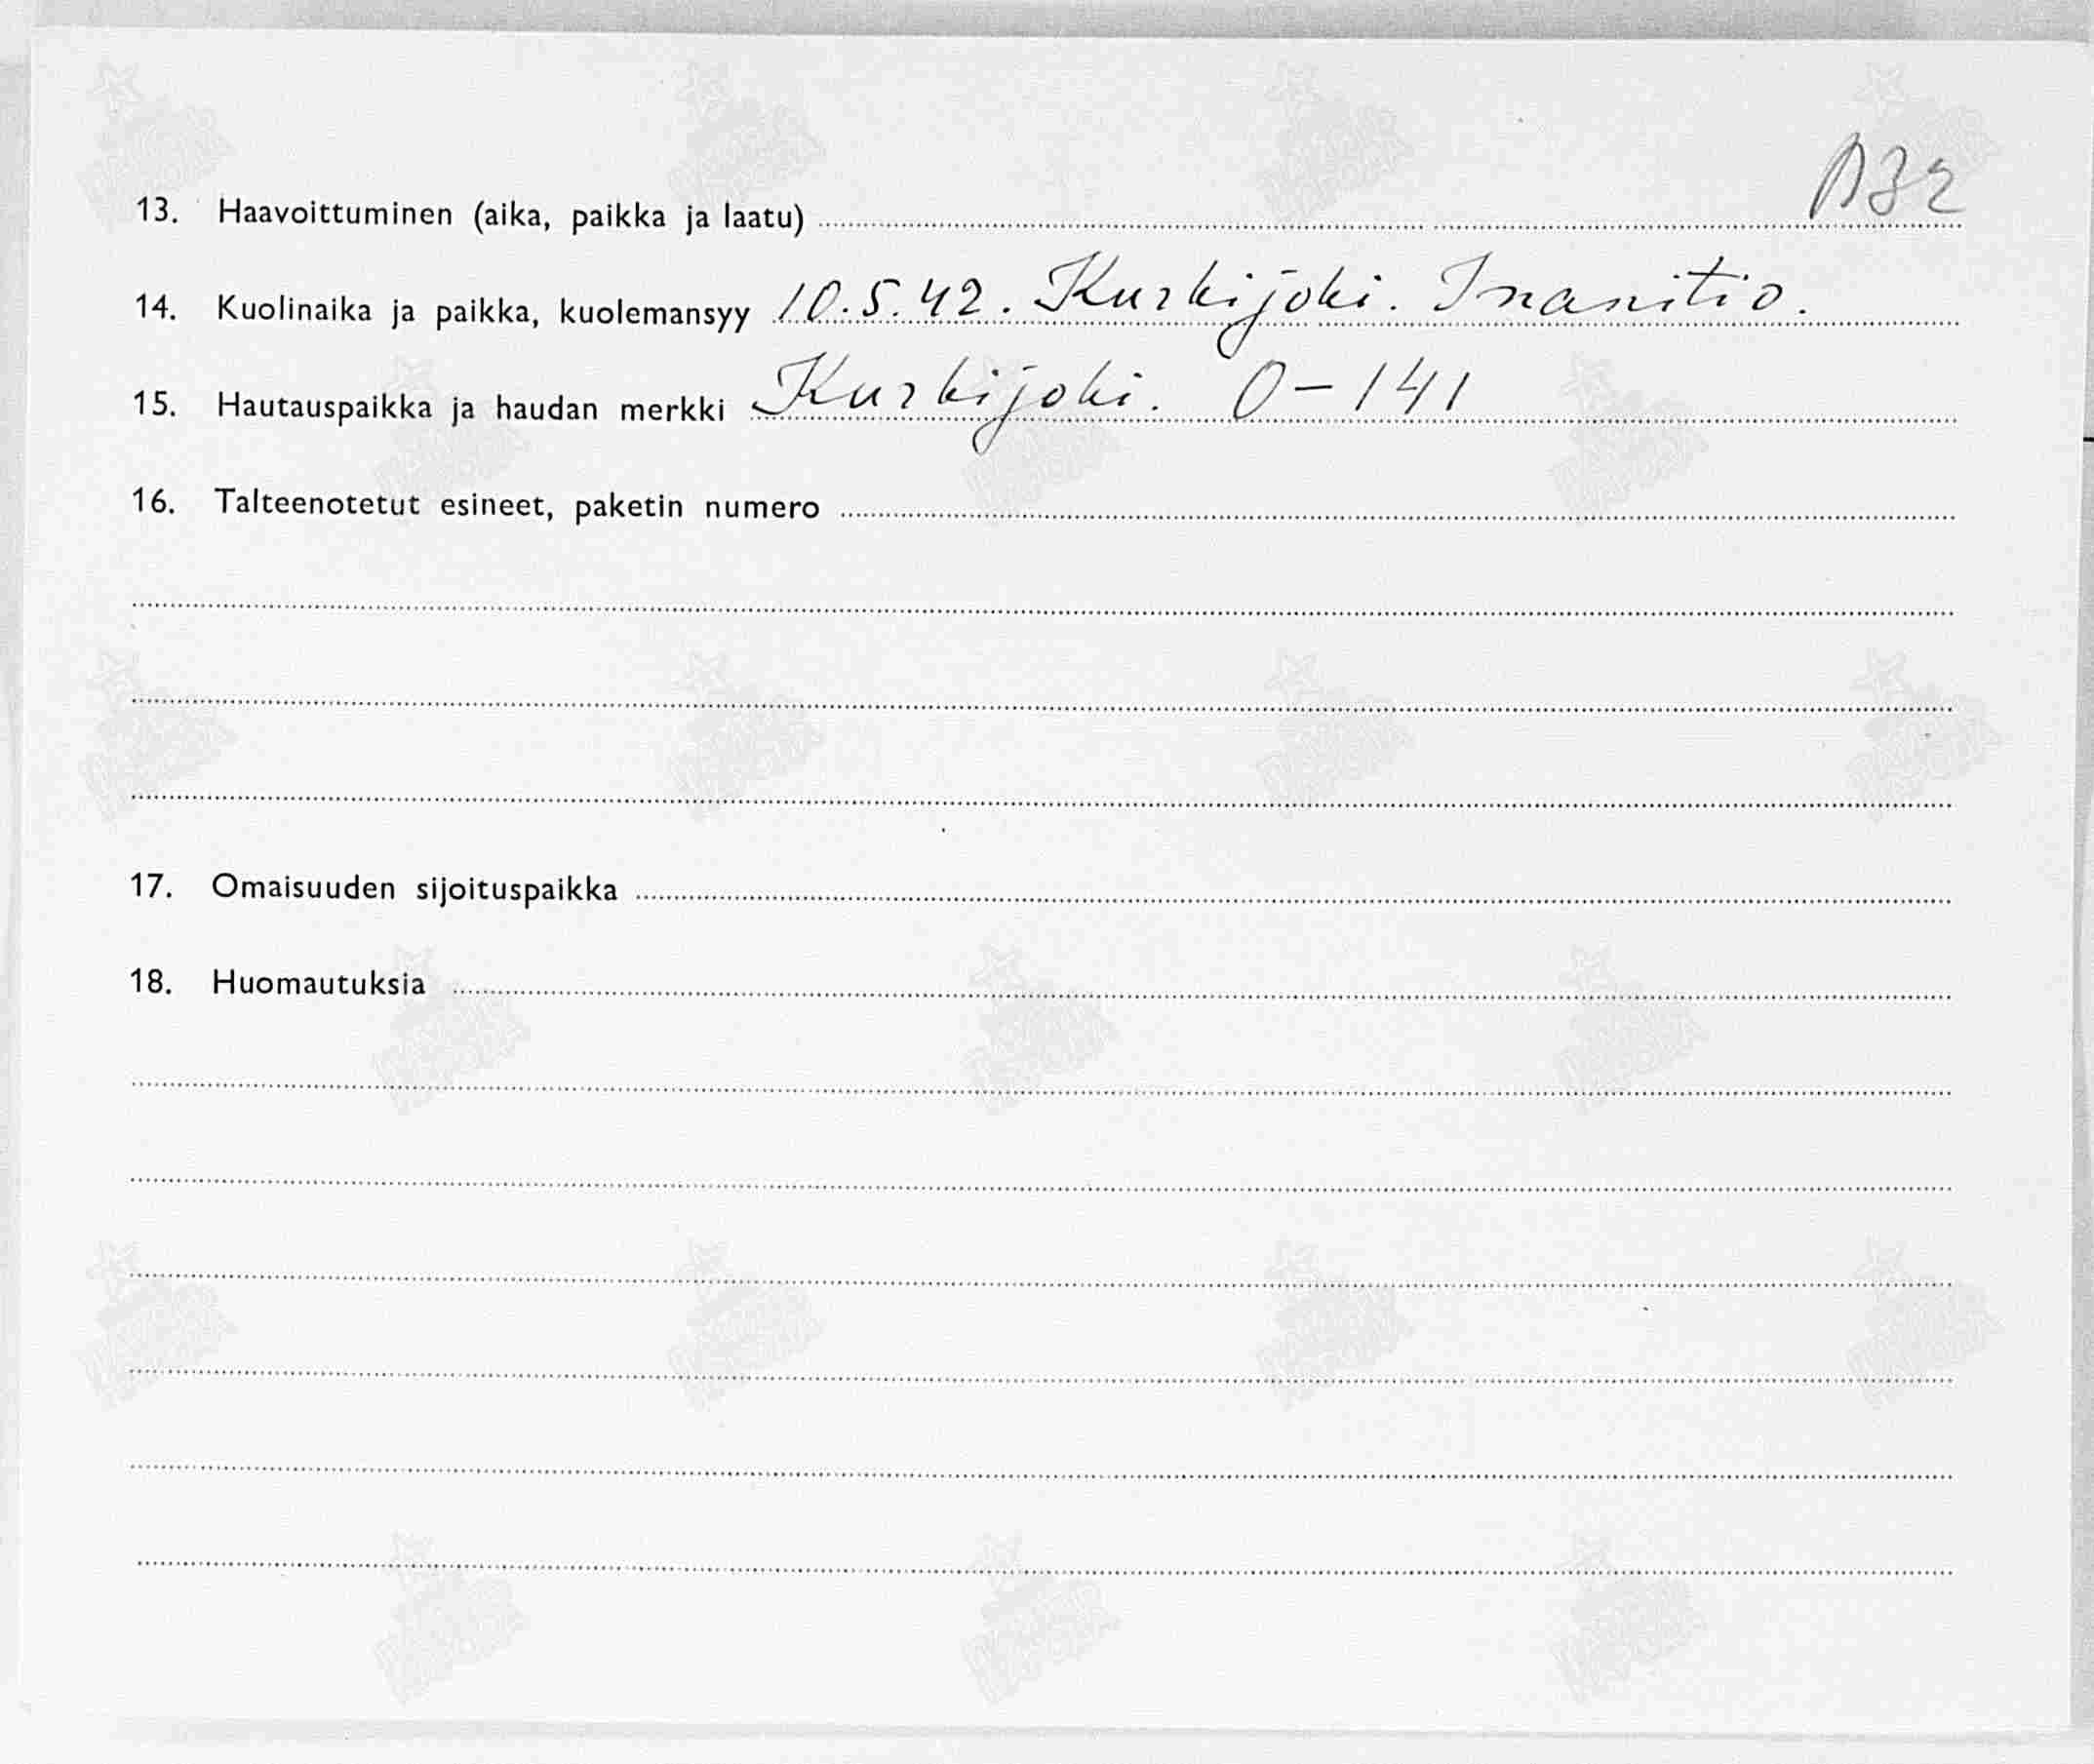 A32
13. Haavoittuminen (aika, paikka ja laatu)
14. Kuolinaika ja paikka, kuolemansyy 10.5.42. Kurkijoki. Inanitio.
15. Hautauspaikka ja haudan merkki Kurkijoki. O-141
16. Talteenotetut esineet, paketin numero
17. Omaisuuden sijoituspaikka
18. Huomautuksia